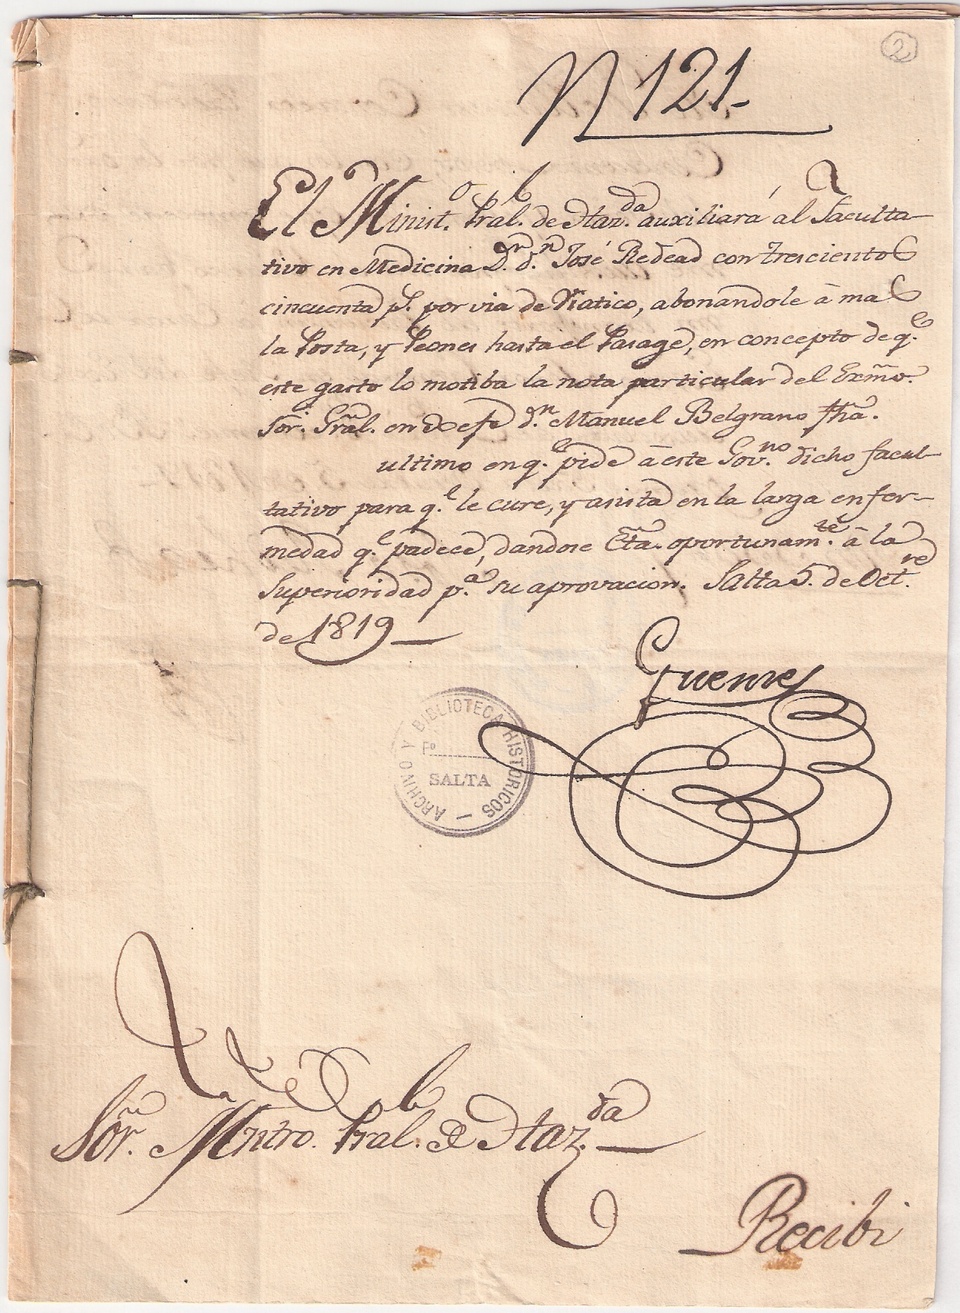 2
N 121
El Minist.º Pral. de Haz.da auxiliará al Faculta-
tivo en Medicina D.r d.n José Redead con trescientos
cincuenta p.s por via de Viatico, abonandole à mas
la Posta, y Peones hasta el Pasage, en concepto de q.e
este gasto lo motiba la nota particular del Exmo.
Sor. Gral. en Xefe d.n Manuel Belgrano fha.
ultimo en q.e pide à este Gov.no dicho facul-
tativo para q.e le cure, y asista en la larga enfer-
medad q.e padece, dandose Cta. oportunam.te à la
Superioridad p.a su aprovacion. Salta 5. de Oct.re
de 1819
Guemes
ARCHIVO Y BIBLIOTECA HISTORICOS
Fº
SALTA
Sor. Mntro. Pral. de Haz.da
Recibi